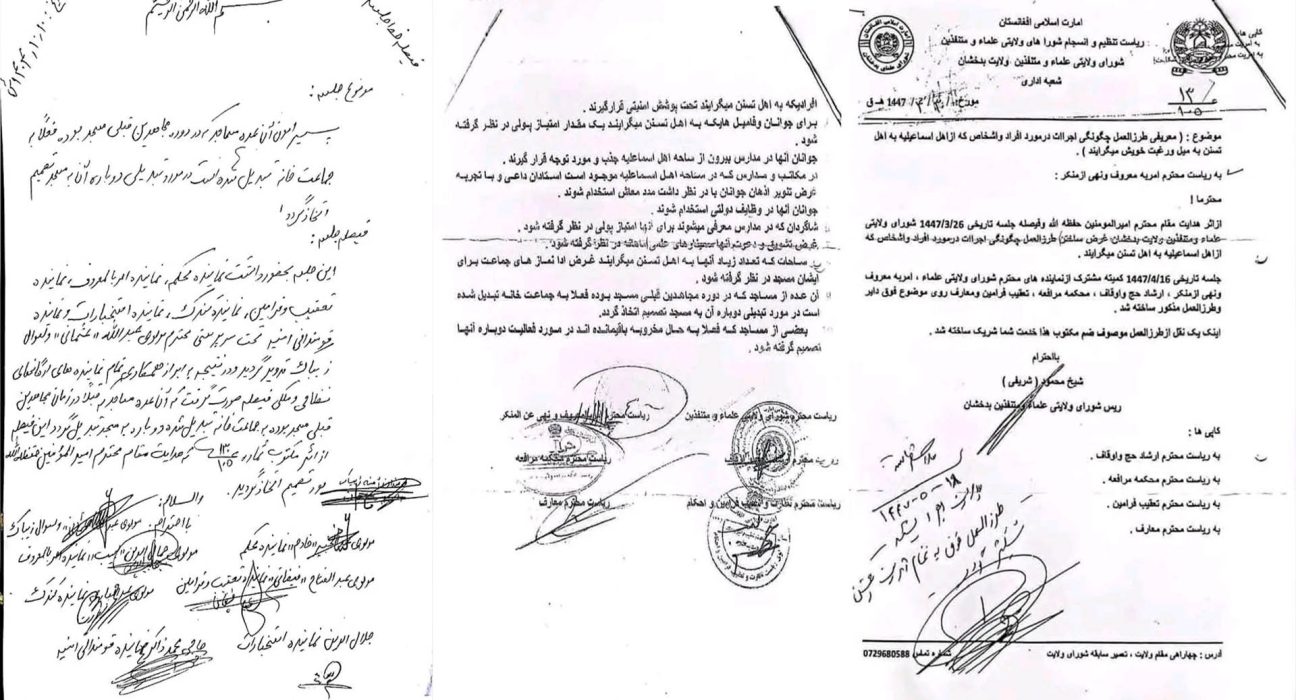 امارت اسلامی افغانستان
ریاست تنظیم و انسجام شورا های ولایتی علماء و متنفذین
شورای ولایتی علماء و متنفذین ولایت بدخشان
شعبه اداری
کاپی ها :
1447 هـ ق
۱۳
۱۰۵
موضوع : ( معرفی طرزالعمل چگونگی اجراات درمورد افراد واشخاص که ازاهل اسماعلیه به اهل
تسنن به میل ورغبت خویش میگرایند ) .
به ریاست محترم امربه معروف ونهی ازمنکر :
محترما !
ازاثر هدایت مقام محترم امیرالمومنین حفظه الله وفیصله جلسه تاریخی 1447/3/26 شورای ولایتی
علماء ومتنفذین ولایت بدخشان غرض ساختن طرزالعمل چگونگی اجراات درمورد افراد واشخاص که
ازاهل اسماعلیه به اهل تسنن میگرایند .
جلسه تاریخی 1447/4/16 کمیته مشترک ازنماینده های محترم شورای ولایتی علماء ، امربه معروف
ونهی ازمنکر ، ارشاد حج واوقاف ، محکمه مرافعه ، تعقیب فرامین ومعارف روی موضوع فوق دایر
وطرزالعمل مذکور ساخته شد .
اینک یک نقل ازطرزالعمل موصوف ضم مکتوب هذا خدمت شما شریک ساخته شد .
باالاحترام
شیخ محمود ( شریفی )
ریس شورای ولایتی علماء ومتنفذین بدخشان
کاپی ها :
به ریاست محترم ارشاد حج واوقاف .
به ریاست محترم محکمه مرافعه .
به ریاست محترم تعقیب فرامین .
به ریاست محترم معارف .
آدرس : چهاراهی مقام ولایت ، تعمیر سابقه شورای ولایت شماره تماس 0729680588
افرادیکه به اهل تسنن میگرایند تحت پوشش امنیتی قرارگیرند .
برای جوانان وفامیل هایکه به اهل تسنن میگرایند یک مقدار امتیاز پولی در نظر گرفته
شود .
جوانان آنها در مدارس بیرون از ساحه اهل اسماعلیه جذب و مورد توجه قرار گیرند .
در مکاتب و مدارس که در ساحه اهل اسماعلیه موجود است استادان داعی و با تجربه
غرض تنویر اذهان جوانان با در نظر داشت مدد معاش استخدام شوند .
جوانان آنها در وظایف دولتی استخدام شوند .
شاگردان که در مدارس معرفی میشوند برای آنها امتیاز پولی در نظر گرفته شود .
غرض تشویق و دعوت آنها سمینارهای علمی ماهانه در نظر گرفته شود .
ساحات که تعداد زیاد آنها به اهل تسنن میگرایند غرض ادا نماز های جماعت برای
ایشان مسجد در نظر گرفته شود .
آن عده از مساجد که در دوره مجاهدین قبلی مسجد بوده فعلا به جماعت خانه تبدیل شده
است در مورد تبدیلی دوباره آن به مسجد تصمیم اتخاذ گردد .
بعضی از مساجد که فعلا به حال مخروبه باقیمانده اند در مورد فعالیت دوباره آنها
تصمیم گرفته شود .
ریاست محترم شورای ولایتی علماء و متنفذین
ریاست محترم امر بالمعروف و نهی عن المنکر
ریاست محترم ارشاد حج و اوقاف
ریاست محترم محکمه مرافعه
ریاست محترم نظارت و تعقیب فرامین و احکام
ریاست محترم معارف
بسم الله الرحمن الرحیم
موضوع جلسه :
پیرامون آنعده مساجد که در دوره مجاهدین قبلی مسجد بوده فعلاً به
جماعت خانه تبدیل شده است در مورد تبدیلی دوباره آن به مسجد تصمیم
اتخاذ گردد !
فیصله جلسه :
این جلسه بحضورداشت نماینده محکمه، نماینده امر بالمعروف، نماینده
تعقیب فرامین، نماینده استخبارات و نماینده
قوماندانی امنیه تحت سرپرستی محترم مولوی عبدالله "عثمانی" ولسوال
زیباک تدویر گردید و در نتیجه به ابراز همکاری تمام نماینده های ارگانهای
نظامی و ملکی فیصله صورت گرفت که آنعده مساجد که قبلاً در زمان مجاهدین
قبلی مسجد بوده به جماعت خانه تبدیل شده دوباره به مسجد تبدیل گردد این فیصله
از اثر مکتوب نمبر ۱۳/۱۰۵ که هدایت مقام محترم امیر المؤمنین حفظه الله
بود تصمیم اتخاذ گردید.
والسلام
بااحترام
ولسوال زیباک
نماینده محکمه
نماینده امر بالمعروف
مولوی عبدالفتاح نماینده تعقیب فرامین
جلال الدین نماینده استخبارات
حاجی محمد ذاکر نماینده قوماندانی امنیه